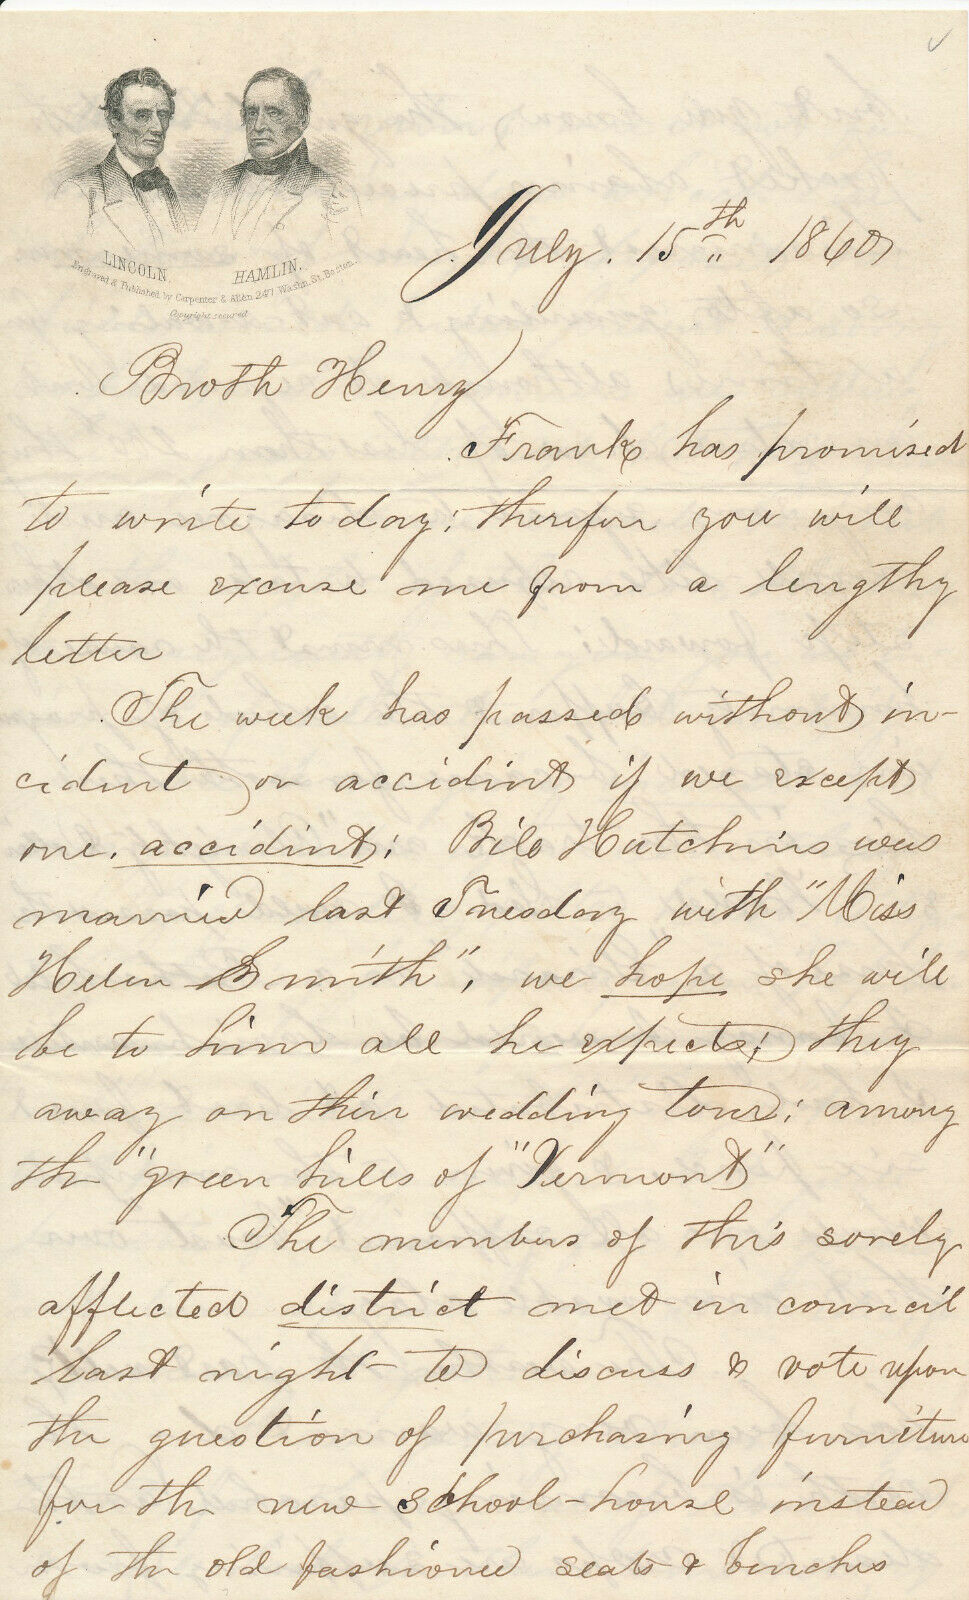 LINCOLN. HAMLIN.
Engraved & Published by Carpenter & Allen 247 Washn. St. Boston.
Copyright secured
July. 15th 1860
Broth Henry
Frank has promised
to write today; therefore you will
please excuse me from a lengthy
letter
The week has passed without in-
cident or accident if we except
one. accident; Bile Hutchins was
married last Tuesday with "Miss
Helen Smith", we hope she will
be to him all he expects; they
away on their wedding tour; among
the "green hills of "Vermont"
The members of this sorely
afflected district met in council
last night to discuss & vote upon
the question of purchasing furniture
for the new school-house instead
of the old fashioned seats & benches